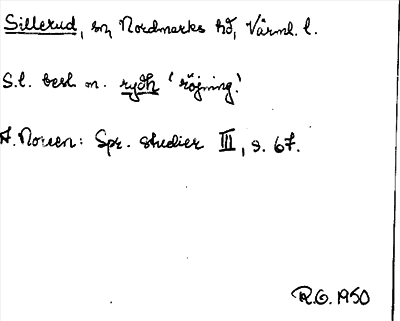 Sillerud, sn, Nordmarks hd, Värml. l.
S.l. besl. m. rydh 'röjning'.
A. Noreen: Spr. studier III, s. 67.
R.G. 1950